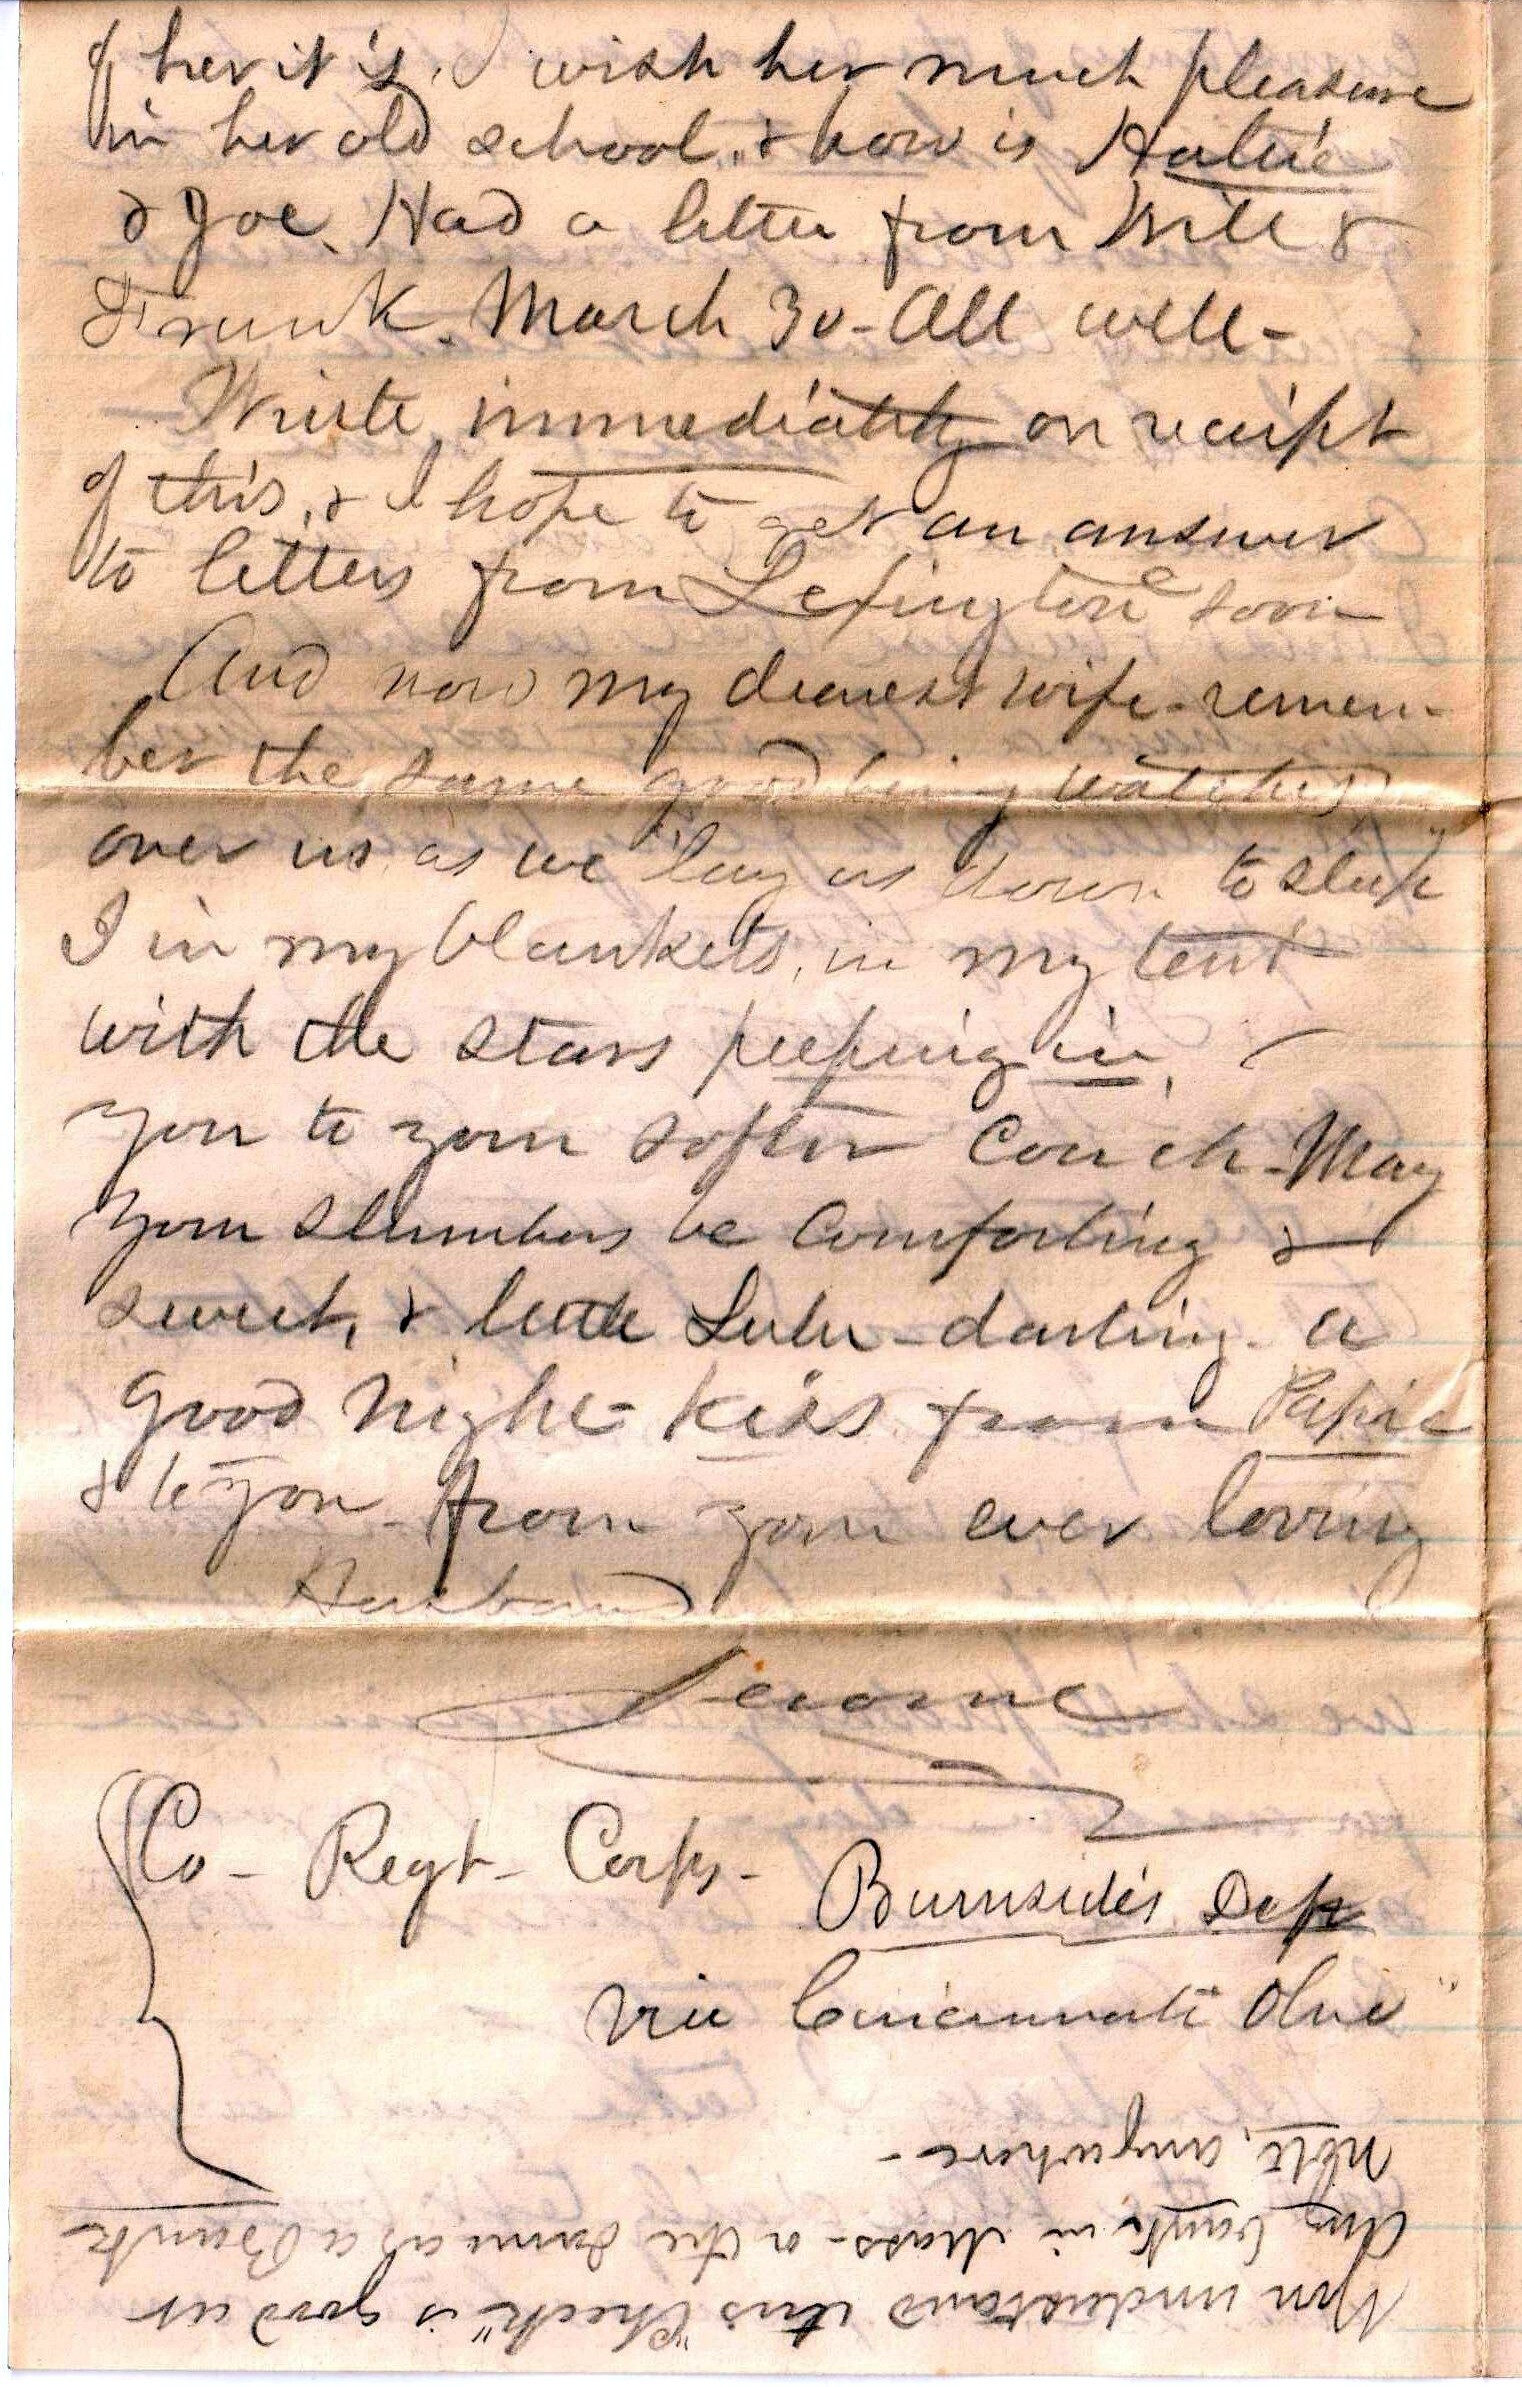 of her it is. I wish her much pleasure
in her old school, & how is Hattie
& Joe. Had a letter from Will &
Frank. March 30 - All well -
Write immediately on receipt
of this, & I hope to get an answer
to letters from Lexington soon
And now my dearest wife - remem-
ber the same good being watches
over us, as we "lay us down to sleep"
I in my blankets, in my tent
with the stars peeping in,
you to your softer couch - May
your slumbers be comforting &
sweet, & little Lulu - darling - a
good night - kiss from Papa
& to you - from your ever loving
Husband
Jerome
Co - Regt - Corps -
Burnside's Dep
via Cincinnati Ohio"
You understand this "Check" is good at
any bank in Mass - or the same as a Bank
Note, anywhere -